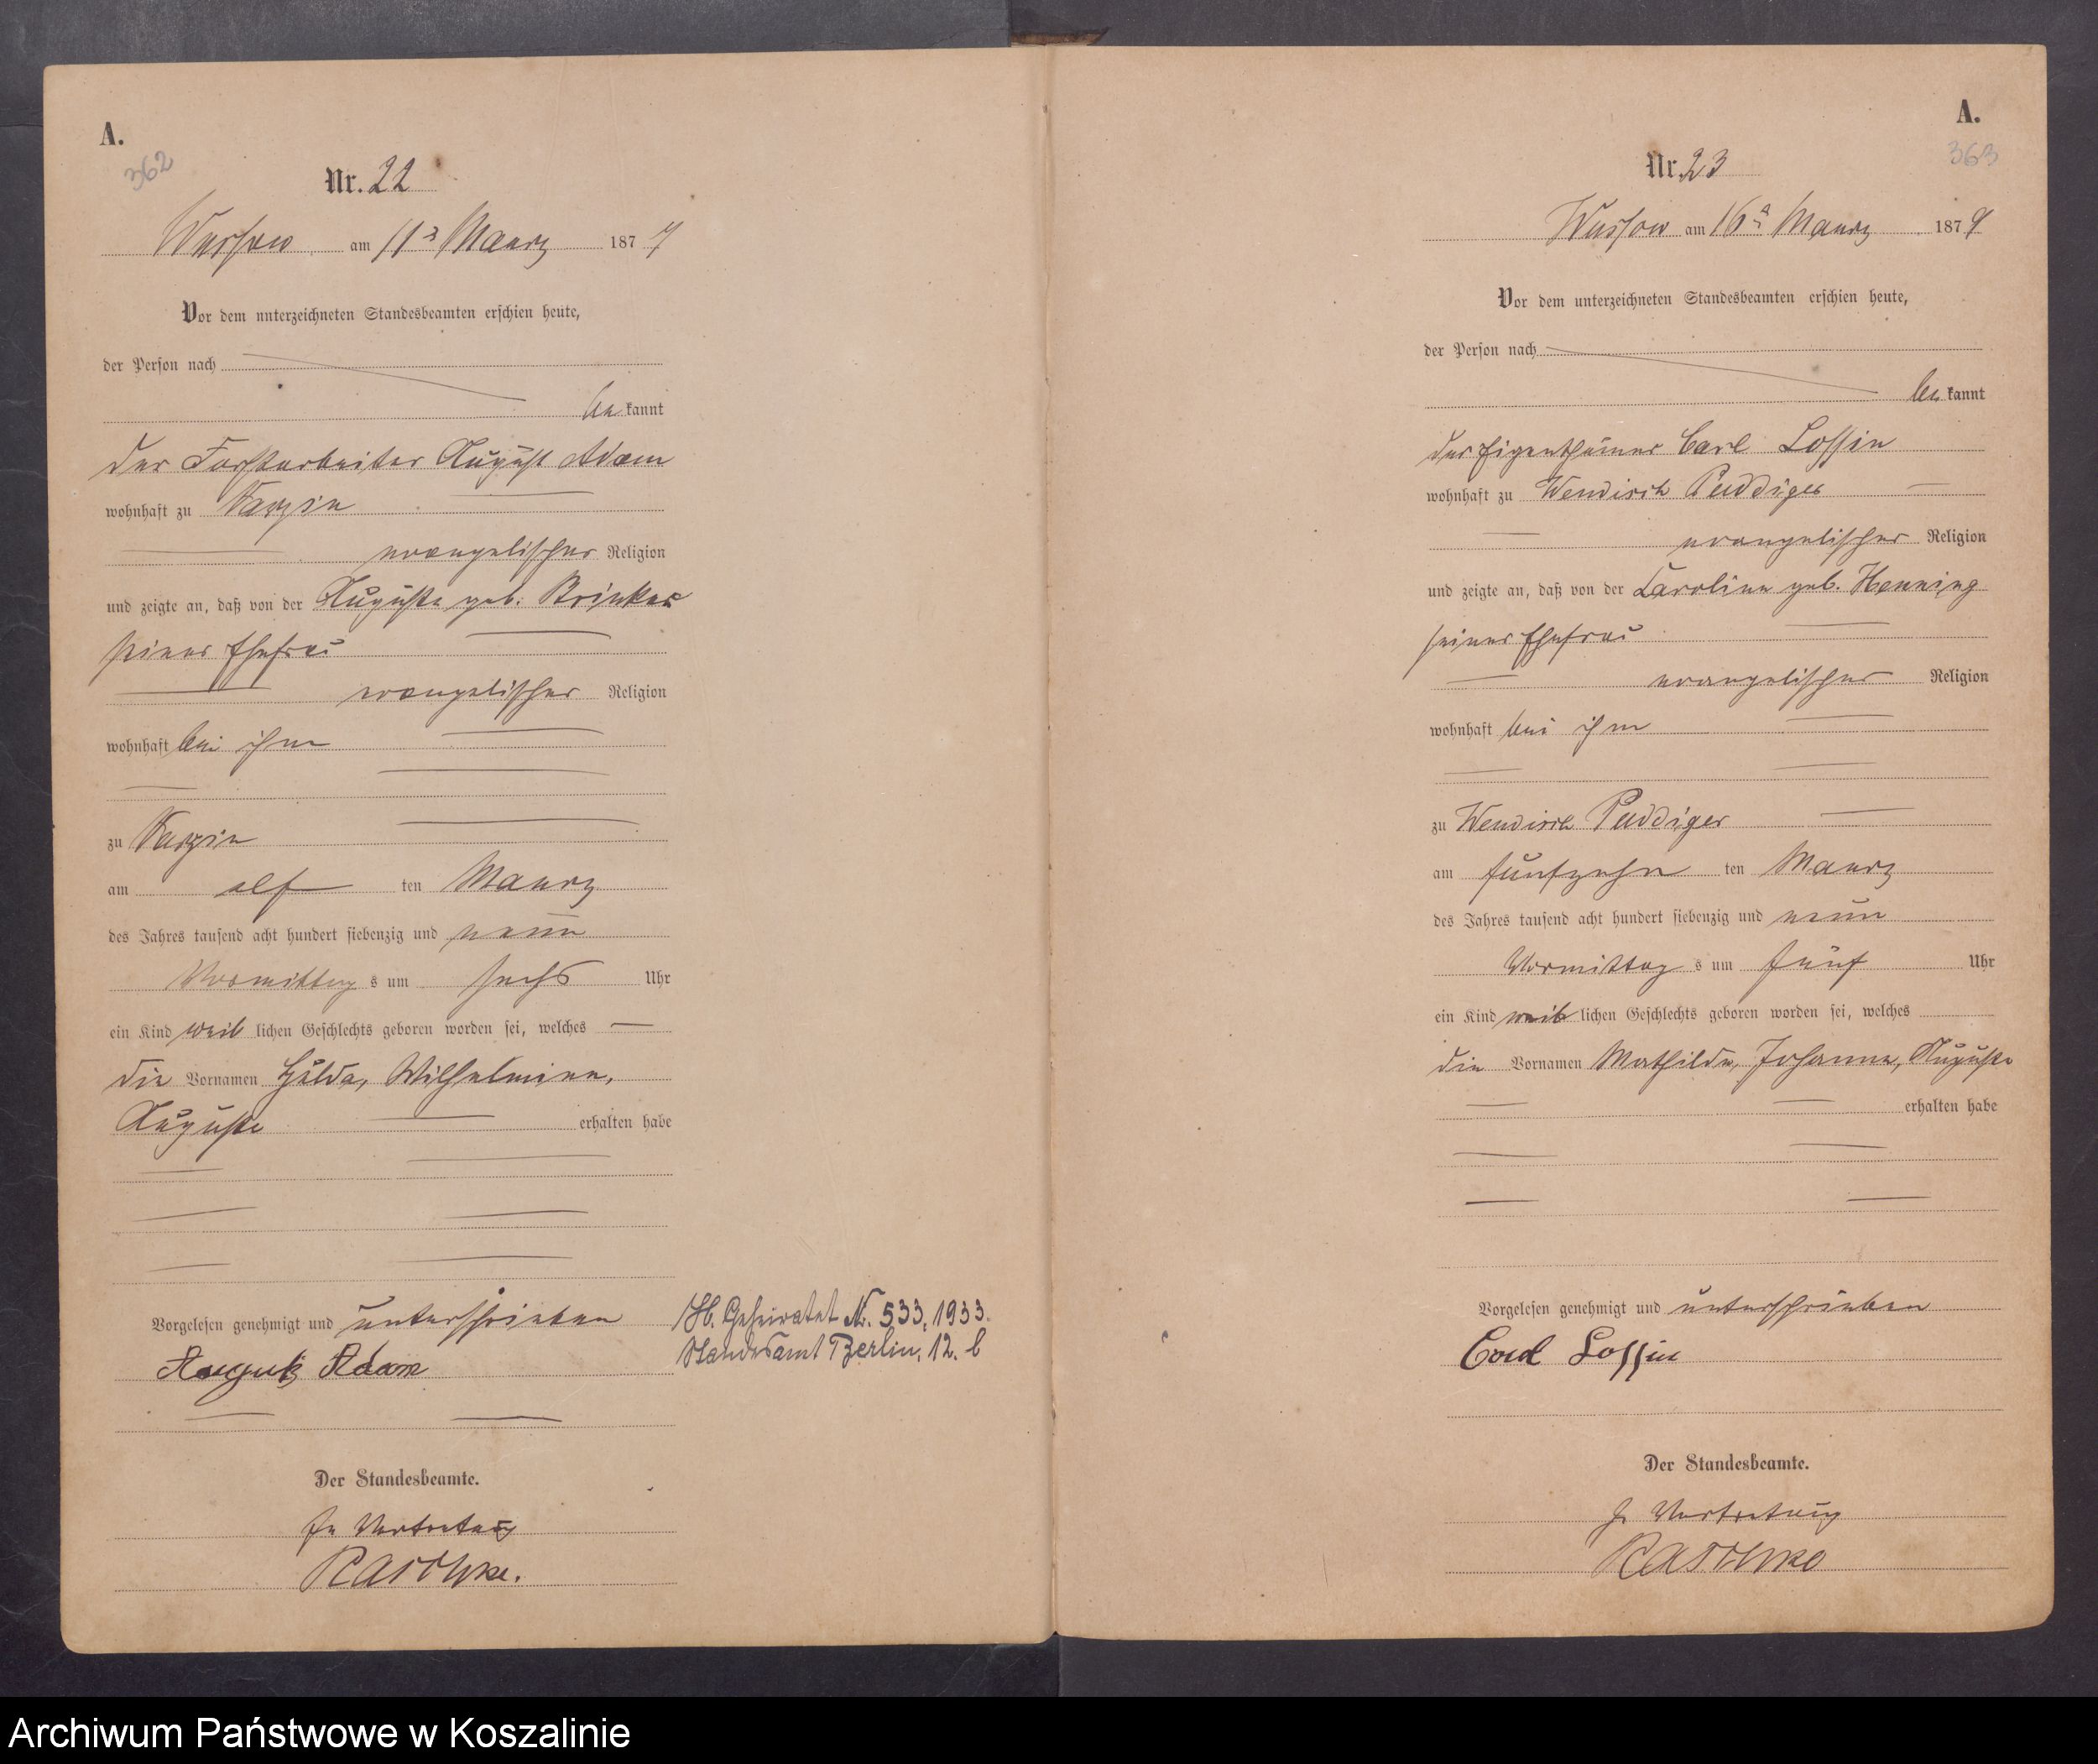 A.
362
Nr. 22
Wussow am 11ᵗ Maerz 1879
Vor dem unterzeichneten Standesbeamten erschien heute,
der Person nach
be kannt
der Forstarbeiter August Adam
wohnhaft zu Varzin
evangelischer Religion
und zeigte an, daß von der Auguste geb. Brinker
seiner Ehefrau
evangelischer Religion
wohnhaft bei ihm
zu Varzin
am elf ten Maerz
des Jahres tausend acht hundert siebenzig und neun
Vormittag s um sechs Uhr
ein Kind weib lichen Geschlechts geboren worden sei, welches
die Vornamen Hulda, Wilhelmine,
Auguste erhalten habe
Vorgelesen genehmigt und unterschrieben
August Adam
Geheiratet Nr. 533, 1933.
Standesamt Berlin, 12. b
Der Standesbeamte.
In Vertretung
Raschke.
A.
363
Nr. 23
Wussow am 16ᵗ Maerz 1879
Vor dem unterzeichneten Standesbeamten erschien heute,
der Person nach
be kannt
der Eigenthümer Carl Lossin
wohnhaft zu Wendisch Puddiger
evangelischer Religion
und zeigte an, daß von der Caroline geb. Henning
seiner Ehefrau
evangelischer Religion
wohnhaft bei ihm
zu Wendisch Puddiger
am fünfzehn ten Maerz
des Jahres tausend acht hundert siebenzig und neun
Vormittag s um fünf Uhr
ein Kind weib lichen Geschlechts geboren worden sei, welches
die Vornamen Mathilde, Johanna, Auguste
erhalten habe
Vorgelesen genehmigt und unterschrieben
Carl Lossin
Der Standesbeamte.
In Vertretung
Raschke
Archiwum Państwowe w Koszalinie